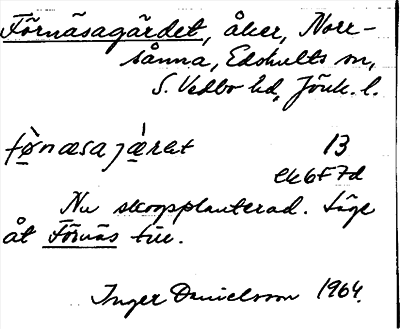 Förnäsagärdet, åker, Norr-
sånna, Edshults sn,
S. Vedbo hd, Jönk. l.
fø̀næsajæ̀rət 13
ek6F7d
Nu skogplanterad. Låge
åt Förnäs till.
Inger Danielsson 1964.